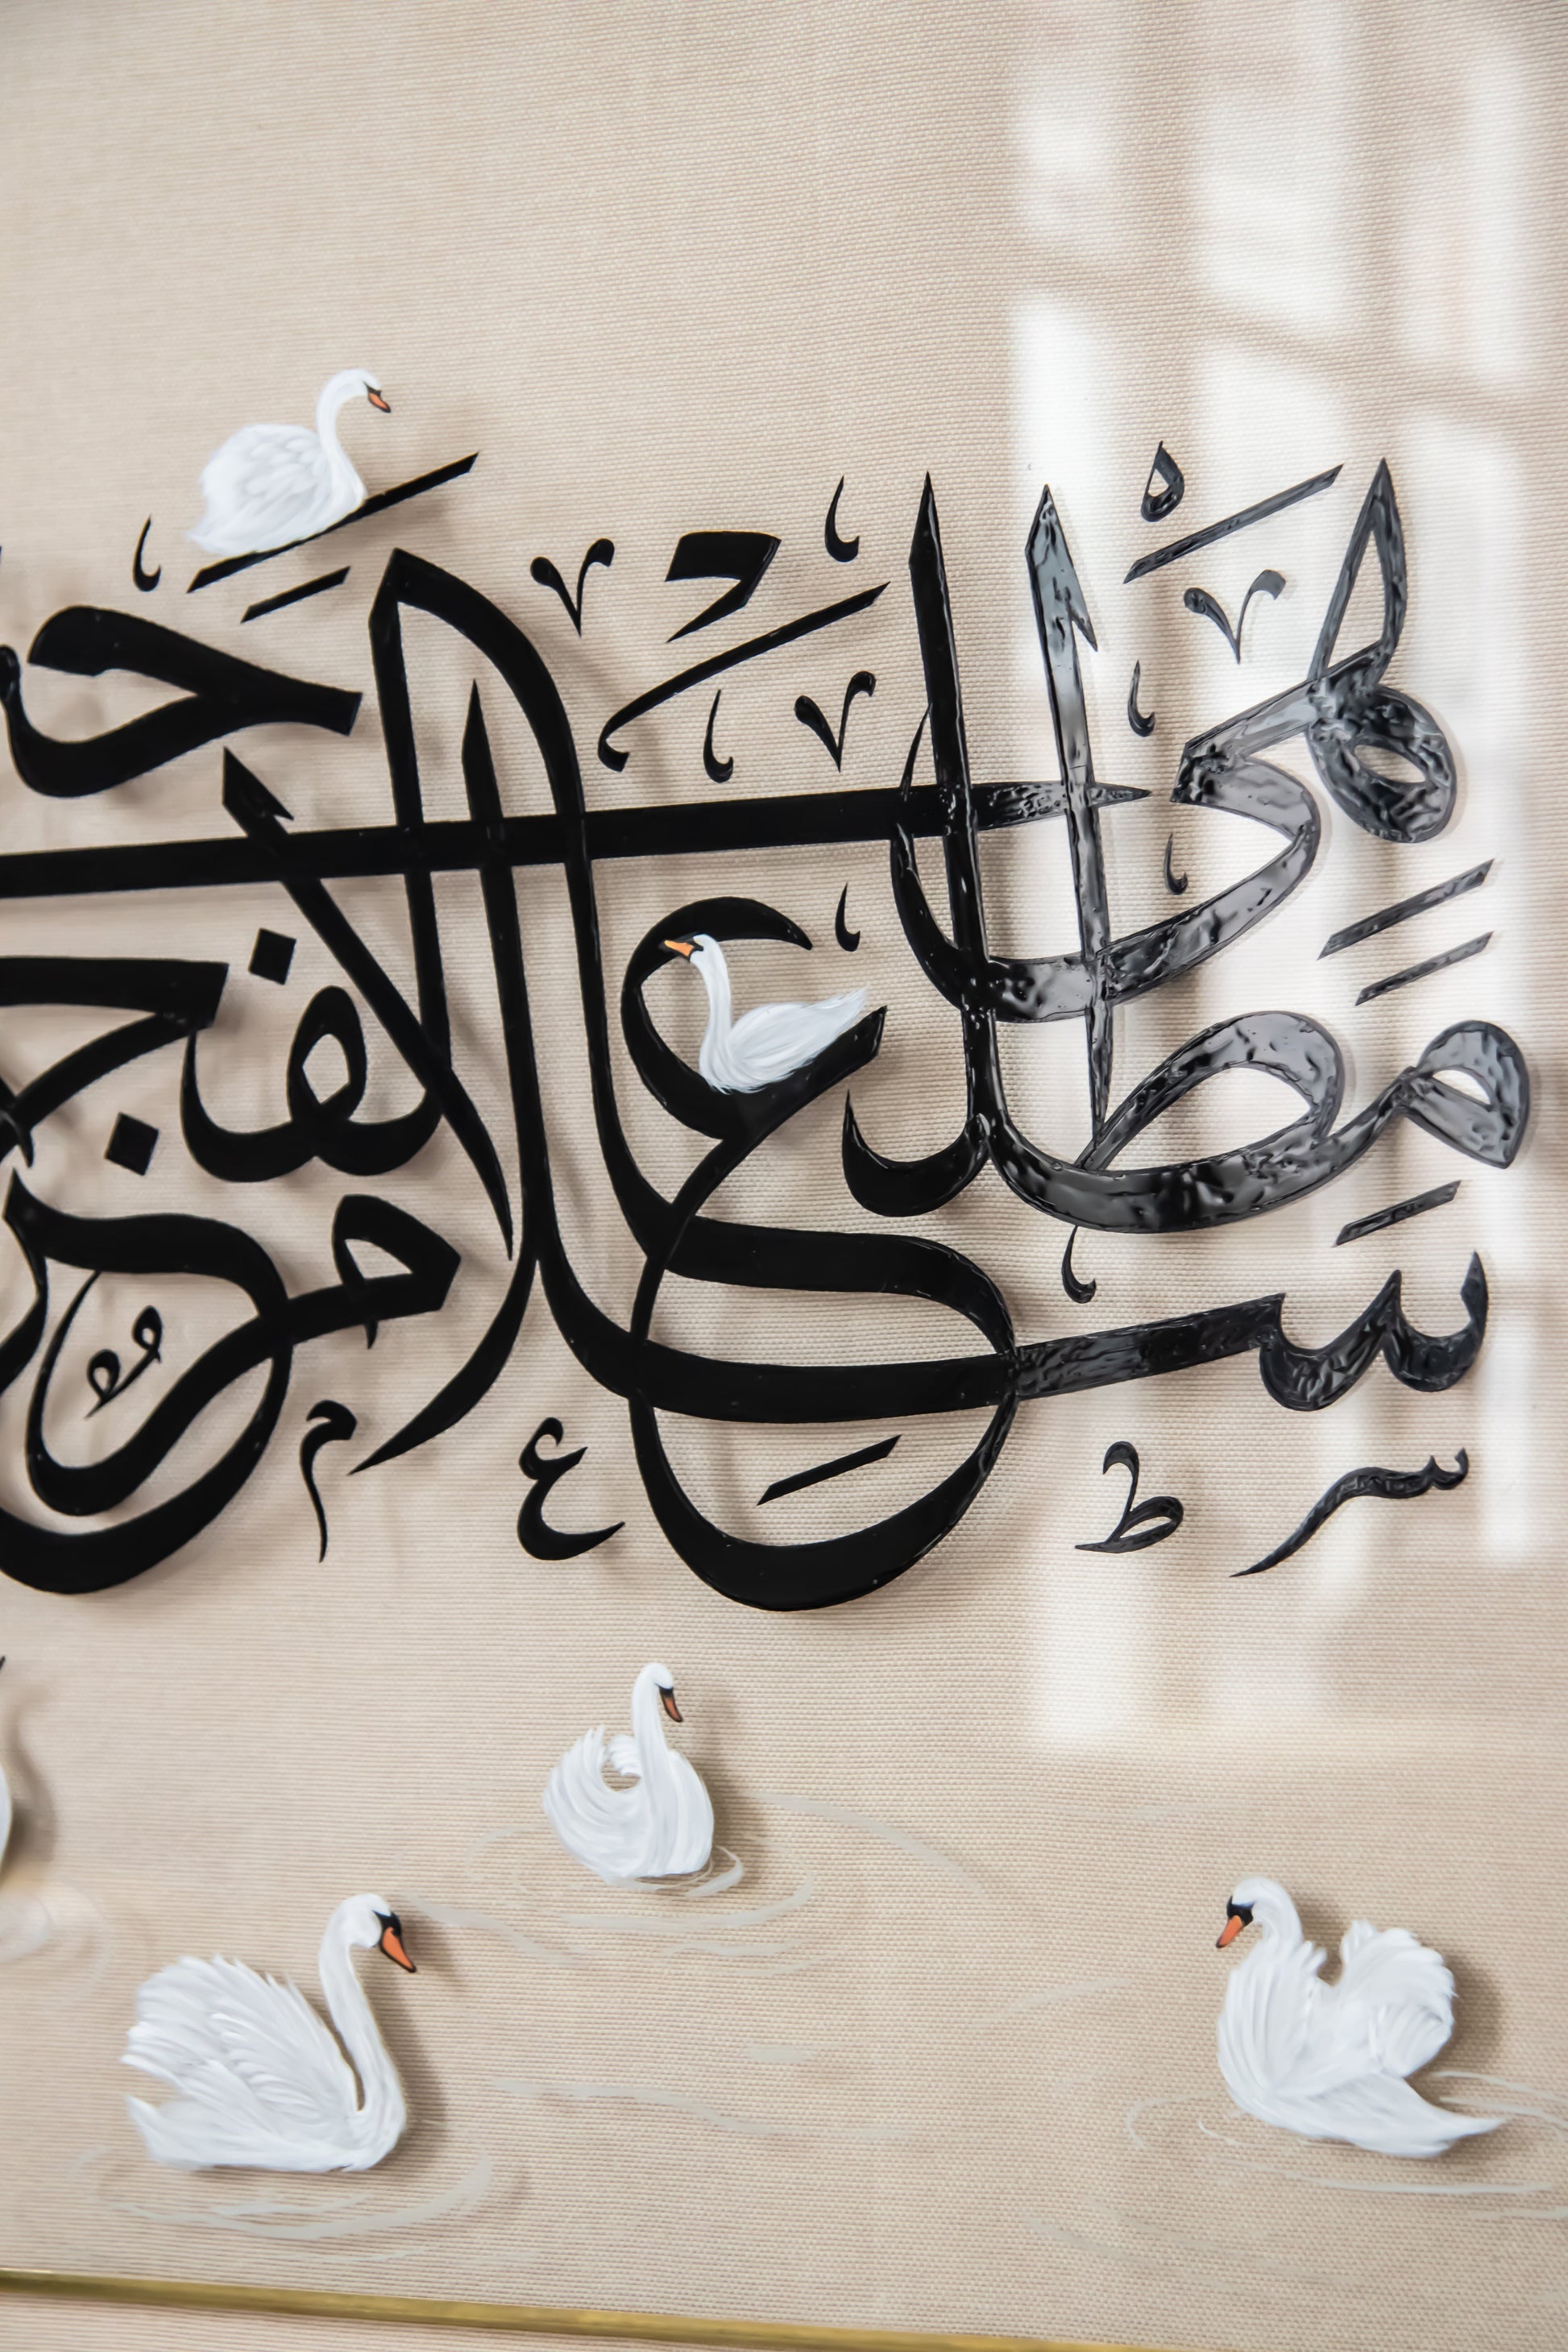 سلام هى حتى مطلع الفجر